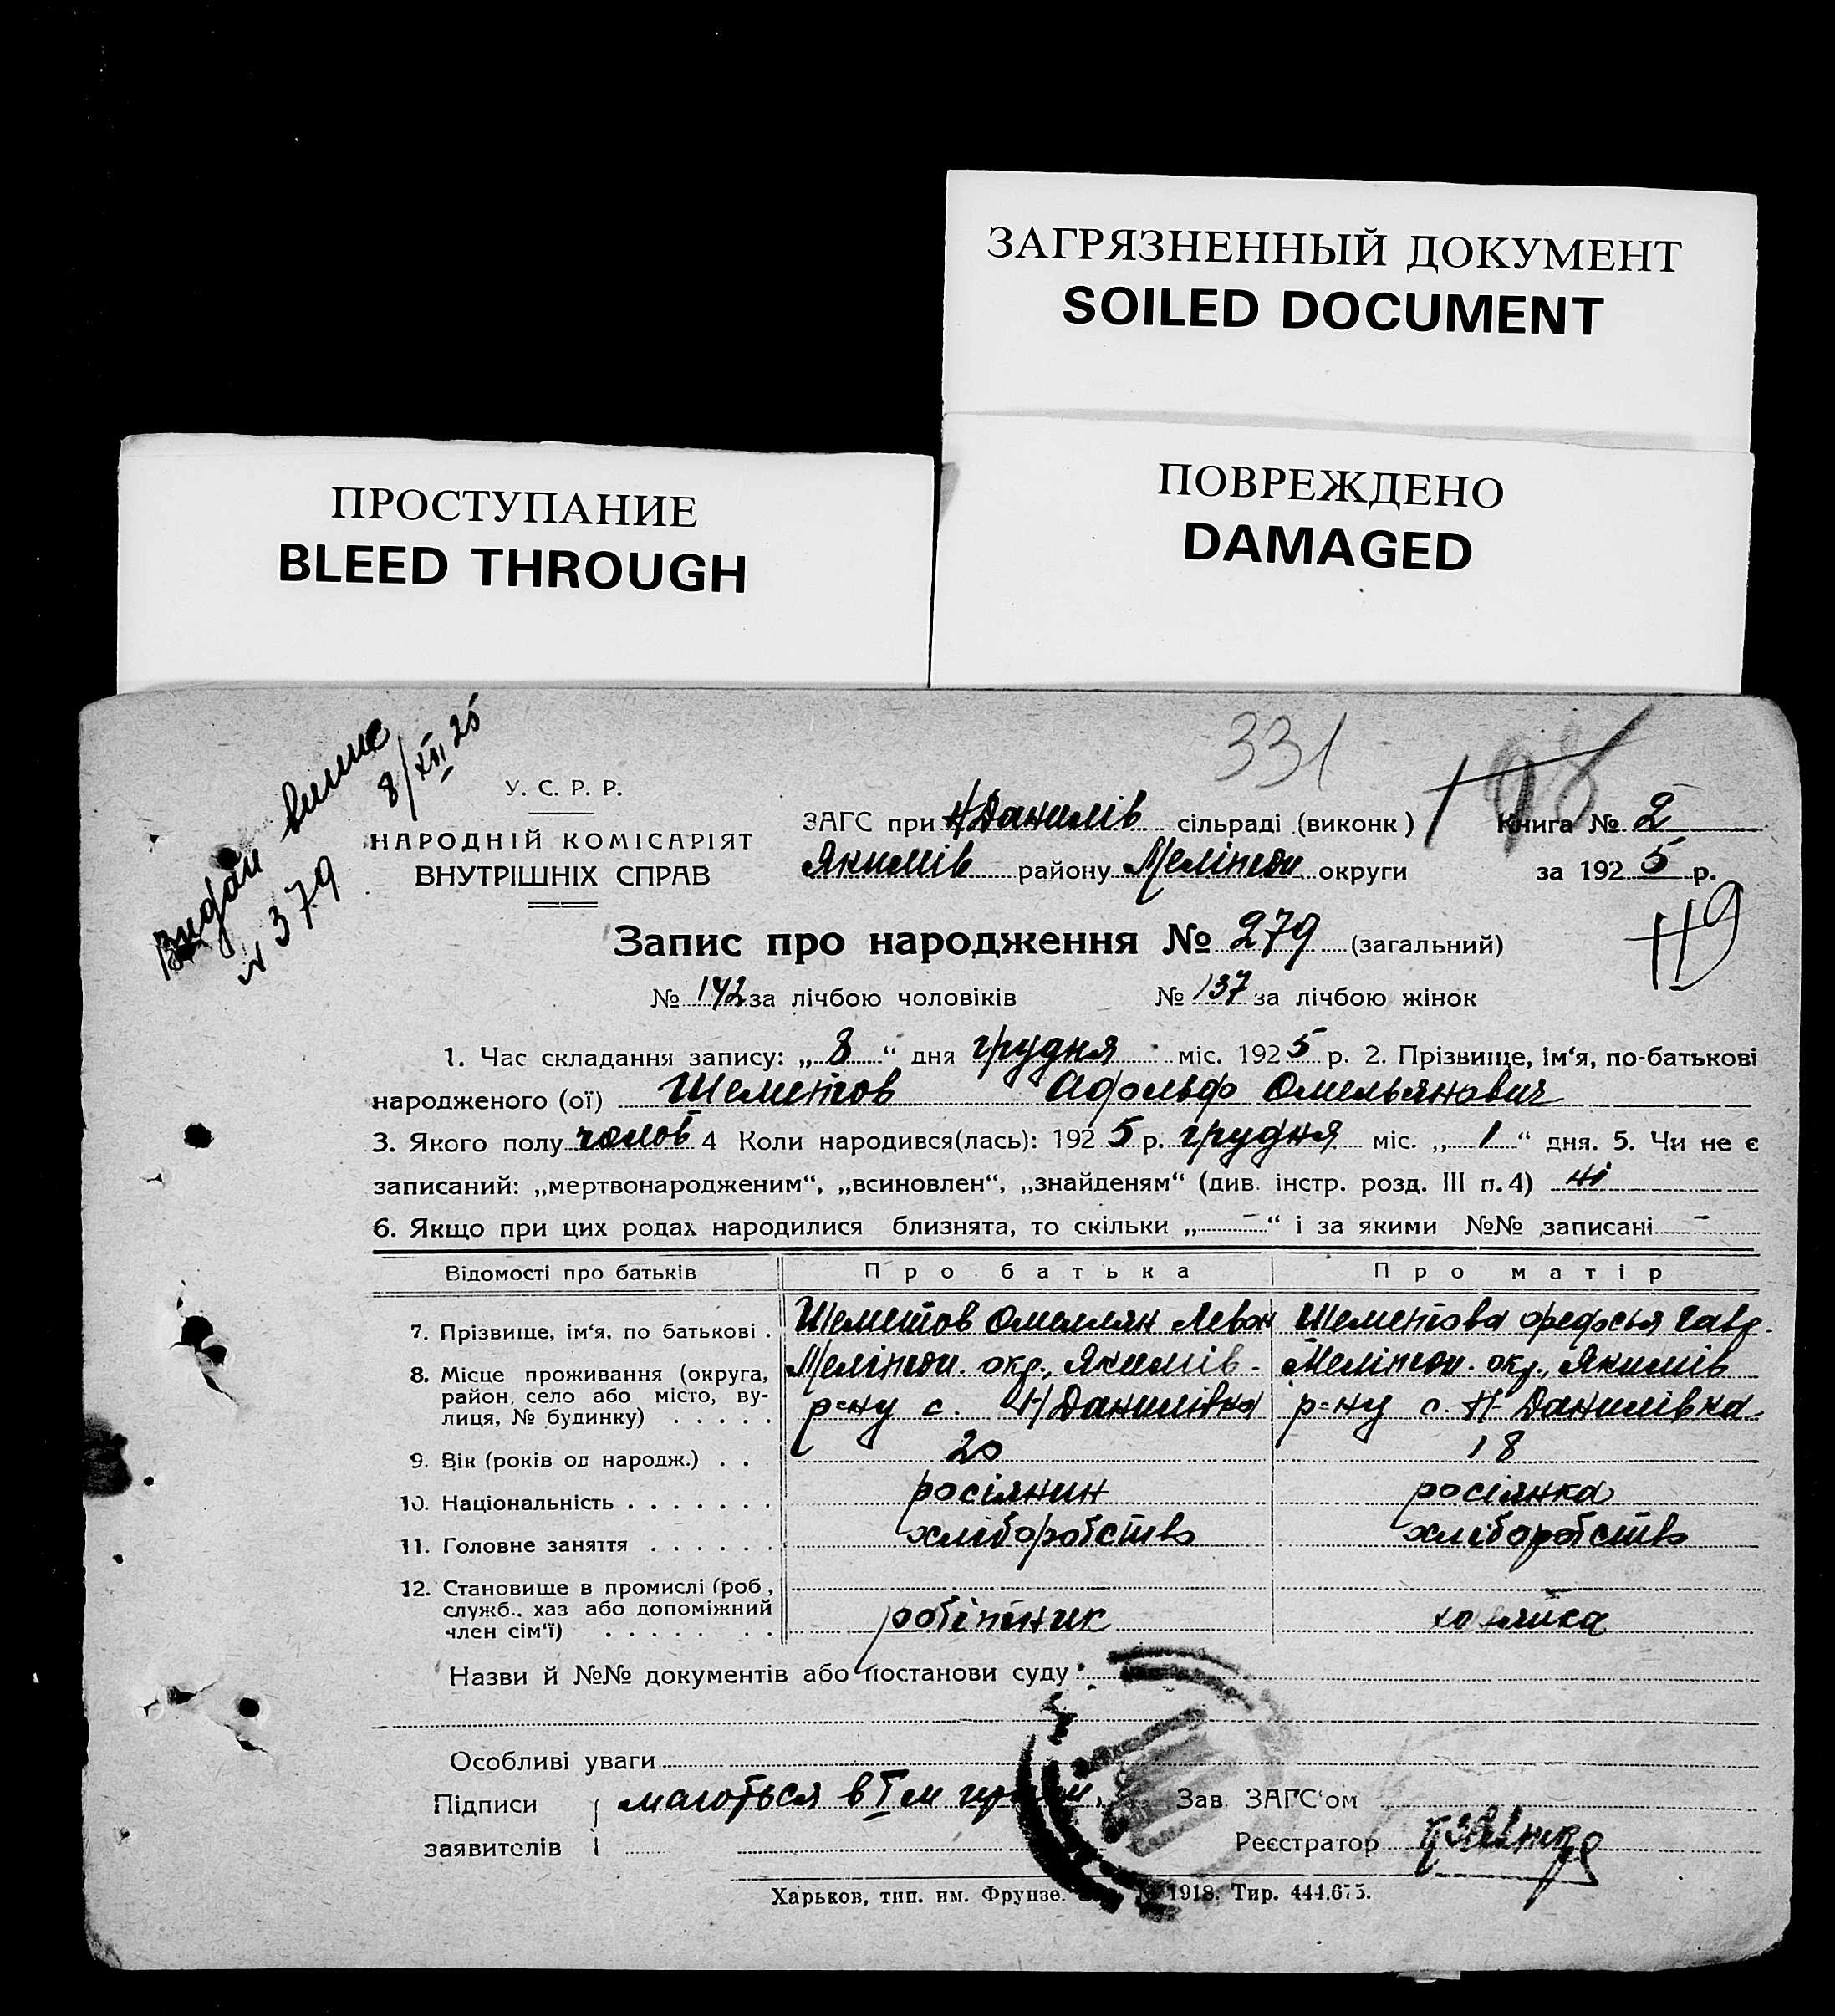 ЗАГРЯЗНЕННЫЙ ДОКУМЕНТ
SOILED DOCUMENT
ПРОСТУПАНИЕ
BLEED THROUGH
ПОВРЕЖДЕНО
DAMAGED
Видан випис
8/XII 25
№ 379
331
98
119
У. С. Р. Р.
НАРОДНІЙ КОМІСАРІЯТ
ВНУТРІШНІХ СПРАВ
ЗАГС при Н/Данилів сільраді (виконк) Книга № 2
Якимів району Мелітоп округи за 1925 р.
Запис про народження № 279 (загальний)
№ 142 за лічбою чоловіків № 137 за лічбою жінок
1. Час складання запису: „8“ дня грудня міс. 1925 р. 2. Прізвище, ім‘я, по-батькові
народженого (ої) Шеметов Адольф Омельянович
3. Якого полу чолов 4 Коли народився(лась): 1925 р. грудня міс. „1“ дня. 5. Чи не є
записаний: „мертвонародженим“, „всиновлен“, „знайденям“ (див. інстр. розд. III п. 4) ні
6. Якщо при цих родах народилися близнята, то скільки „-“ і за якими №№ записані -
Відомості про батьків Про батька Про матір
7. Прізвище, ім‘я, по батькові . Шеметов Омелян Левон Шеметова Федосья Гавр.
8. Місце проживання (округа, район, село або місто, вулиця, № будинку) Мелітоп. окр., Якимів- Мелітоп. окр., Якимів
р-ну с. Н/Данилівка р-ну с. Н-Данилівка
9. Вік (років од народж.) . . 20 18
10. Національність росіянин росіянка
11. Головне заняття хліборобство хліборобство
12. Становище в промислі (роб., служб., хаз або допоміжний член сім‘ї) робітник хазяйка
Назви й №№ документів або постанови суду
Особливі уваги
Підписи маються в І м Зав. ЗАГС‘ом
заявителів Реєстратор
Харьков, тип. им. Фрунзе. № 1918. Тир. 444.675.